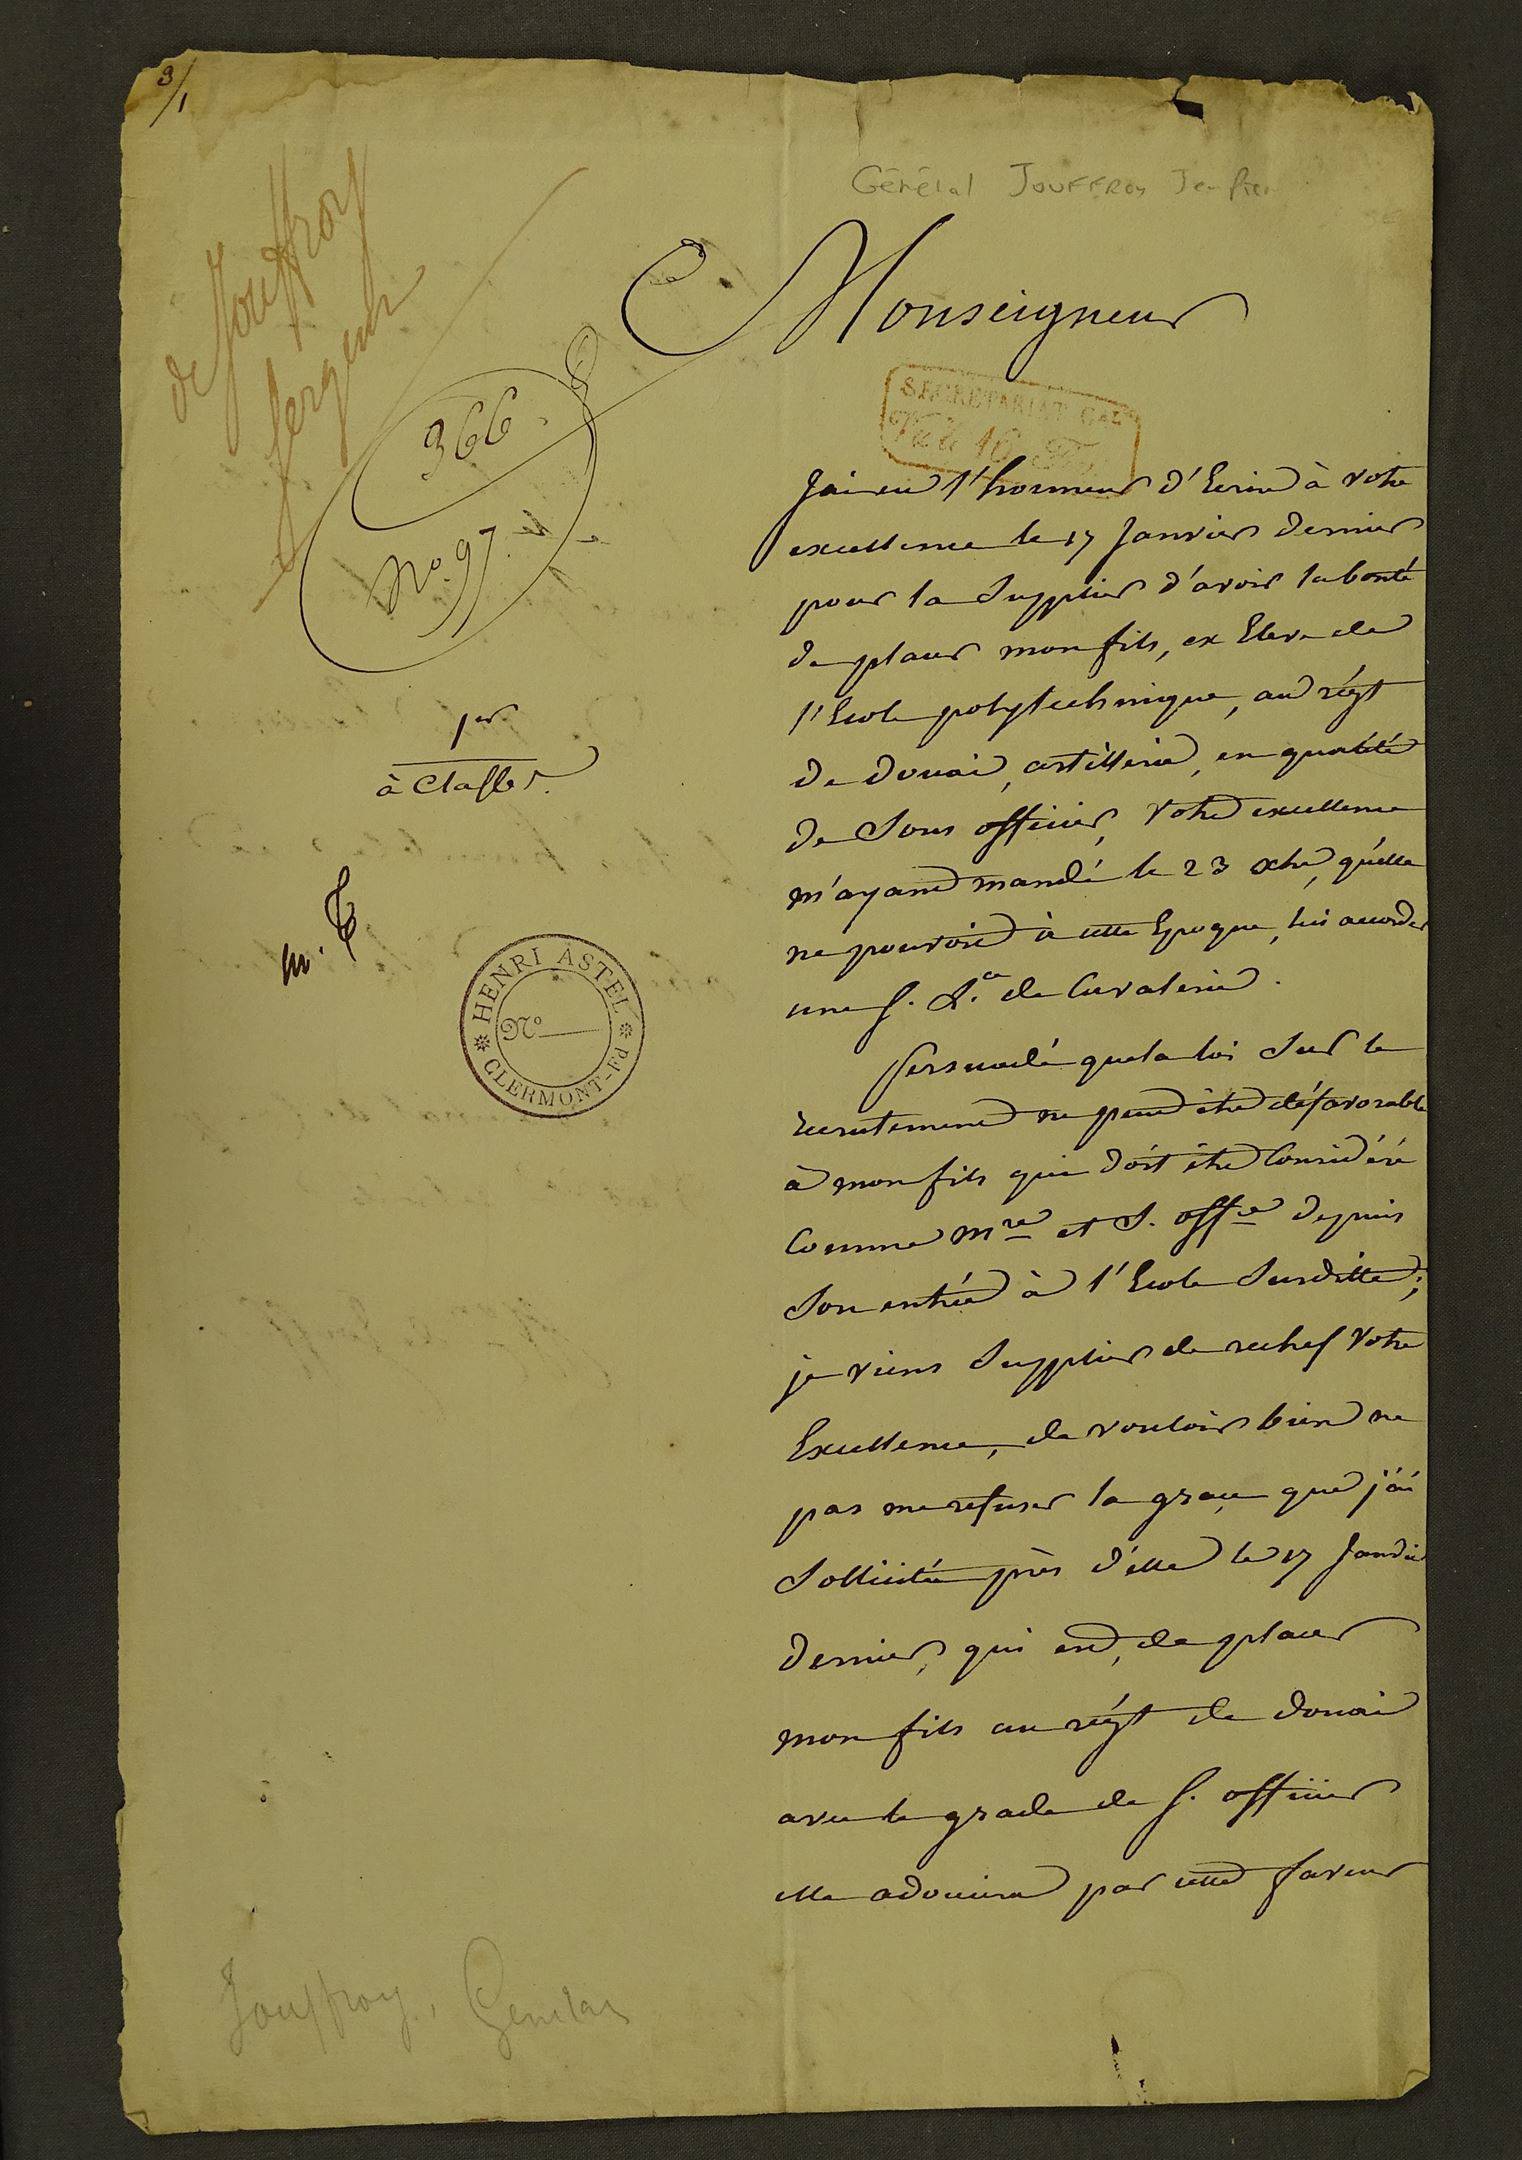 3/1
Général JOUFFROY
de Jouffroy
Sergent
Monseigneur
366.
No. 97.
SECRETARIAT GAL
J'ai eu l'honneur d'Ecrire à votre
excellence le 17 Janvier dernier
pour la Supplier d'avoir la bonté
de placer mon fils, ex Eleve de
l'Ecole polytechnique, au régt
de douai, artillerie, en qualité
de Sous officier, Votre excellence
m'ayant mandé le 23 xbre, qu'elle
ne pouvoit à cette Epoque, lui accorder
une S. L.ce de Cavalerie.
1er
à Classer.
HENRI ASTEL
No
CLERMONT-Fd
Persuadé que la loi Sur le
recrutement ne peut être défavorable
à mon fils qui doit être Considéré
Comme mre et S. offer depuis
Son entrée à l'Ecole Susditte;
je viens Supplier de rechef Votre
Excellence, de vouloir bien ne
pas me refuser la grace que j'ai
Sollicitée près d'elle le 17 Janvier
dernier, qui est, de placer
mon fils au régt de douai
avec le grade de S. officier
elle adoucira par cette faveur
Jouffroy, Général